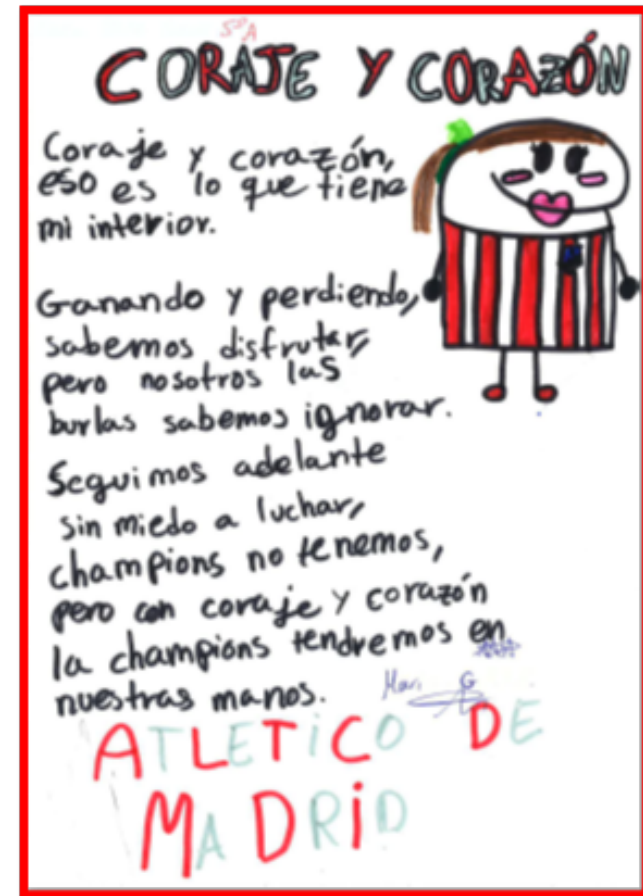 5ºA
CORAJE Y CORAZÓN
Coraje y corazón,
eso es lo que tiene
mi interior.
Ganando y perdiendo,
sabemos disfrutar,
pero nosotros las
burlas sabemos ignorar.
Seguimos adelante
sin miedo a luchar,
champions no tenemos,
pero con coraje y corazón
la champions tendremos en
nuestras manos.
ATLETiCO DE
MADRiD